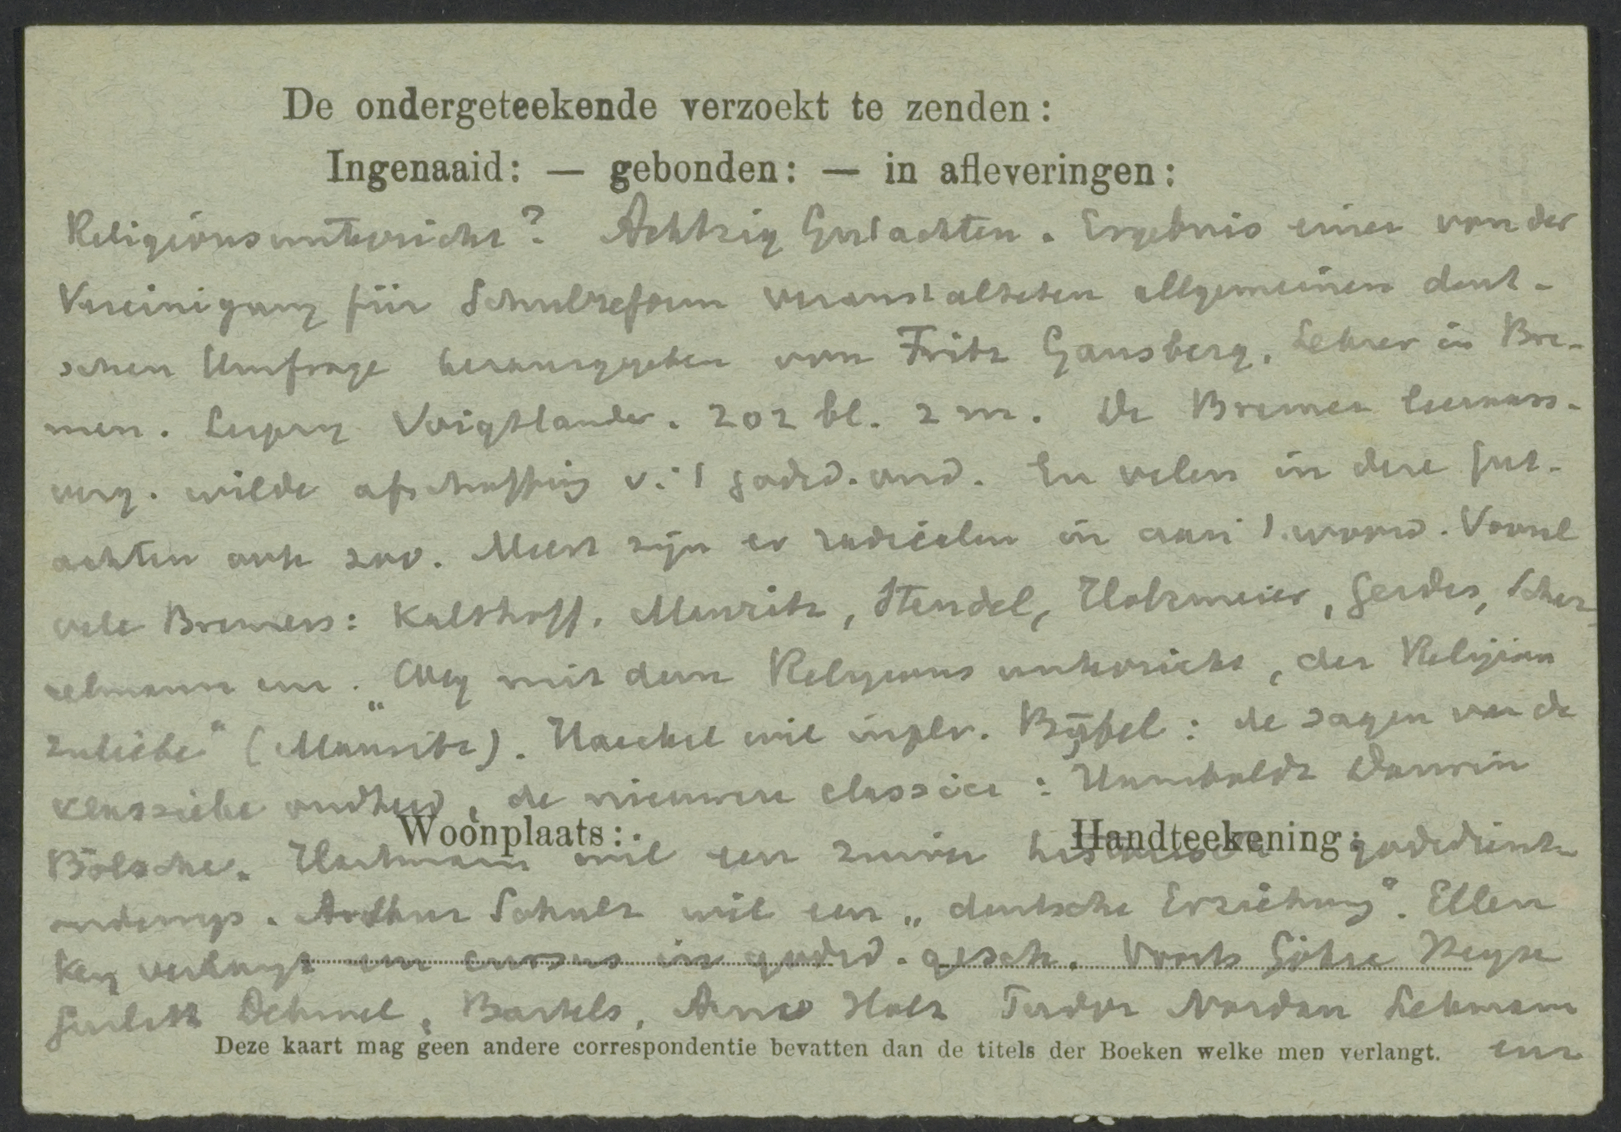 De ondergeteekende verzoekt te zenden:
Ingenaaid: — gebonden: — in afleveringen:
Religionsunterricht? Achtzig Gutachten. Ergebnis einer von der
Vereinigung für Schulreform veranstalteten allgemeinen deut-
schen Umfrage herausgegeben von Fritz Gansberg, Lehrer in Bre-
men. Leipzig Voigtlander. 202 bl. 2 m. De Bremer
verg. wilde afschaffing v. 't godsd. ond. En velen in deze Gut-
achten ook zoo. Meest zijn er radicalen in aan 't woord. Vooral
vele Bremers: Kalthoff, Mauritz, Steudel, Holzmeier, Gerdes, Schar-
relmann enz. "Weg mit dem Religionsunterricht, der Religion
zuliebe" (Mauritz). Haeckel wil in plv. Bijbel: de sagen van de
klassieke oudheid, de nieuwere classici: Humboldt Darwin
Woonplaats: Handteekening:
Bölsche. Hartmann wil een zuiver historisch godsdienst-
onderwijs. Arthur Schulz wil een „deutsche Erziehung". Ellen
Key verlangt een cursus in godsd. gesch. Voorts Göhre Heyse
Gurlitt Dehmel, Bartels, Arno Holz Tudor Nordau Lehmann
Deze kaart mag geen andere correspondentie bevatten dan de titels der Boeken welke men verlangt. enz